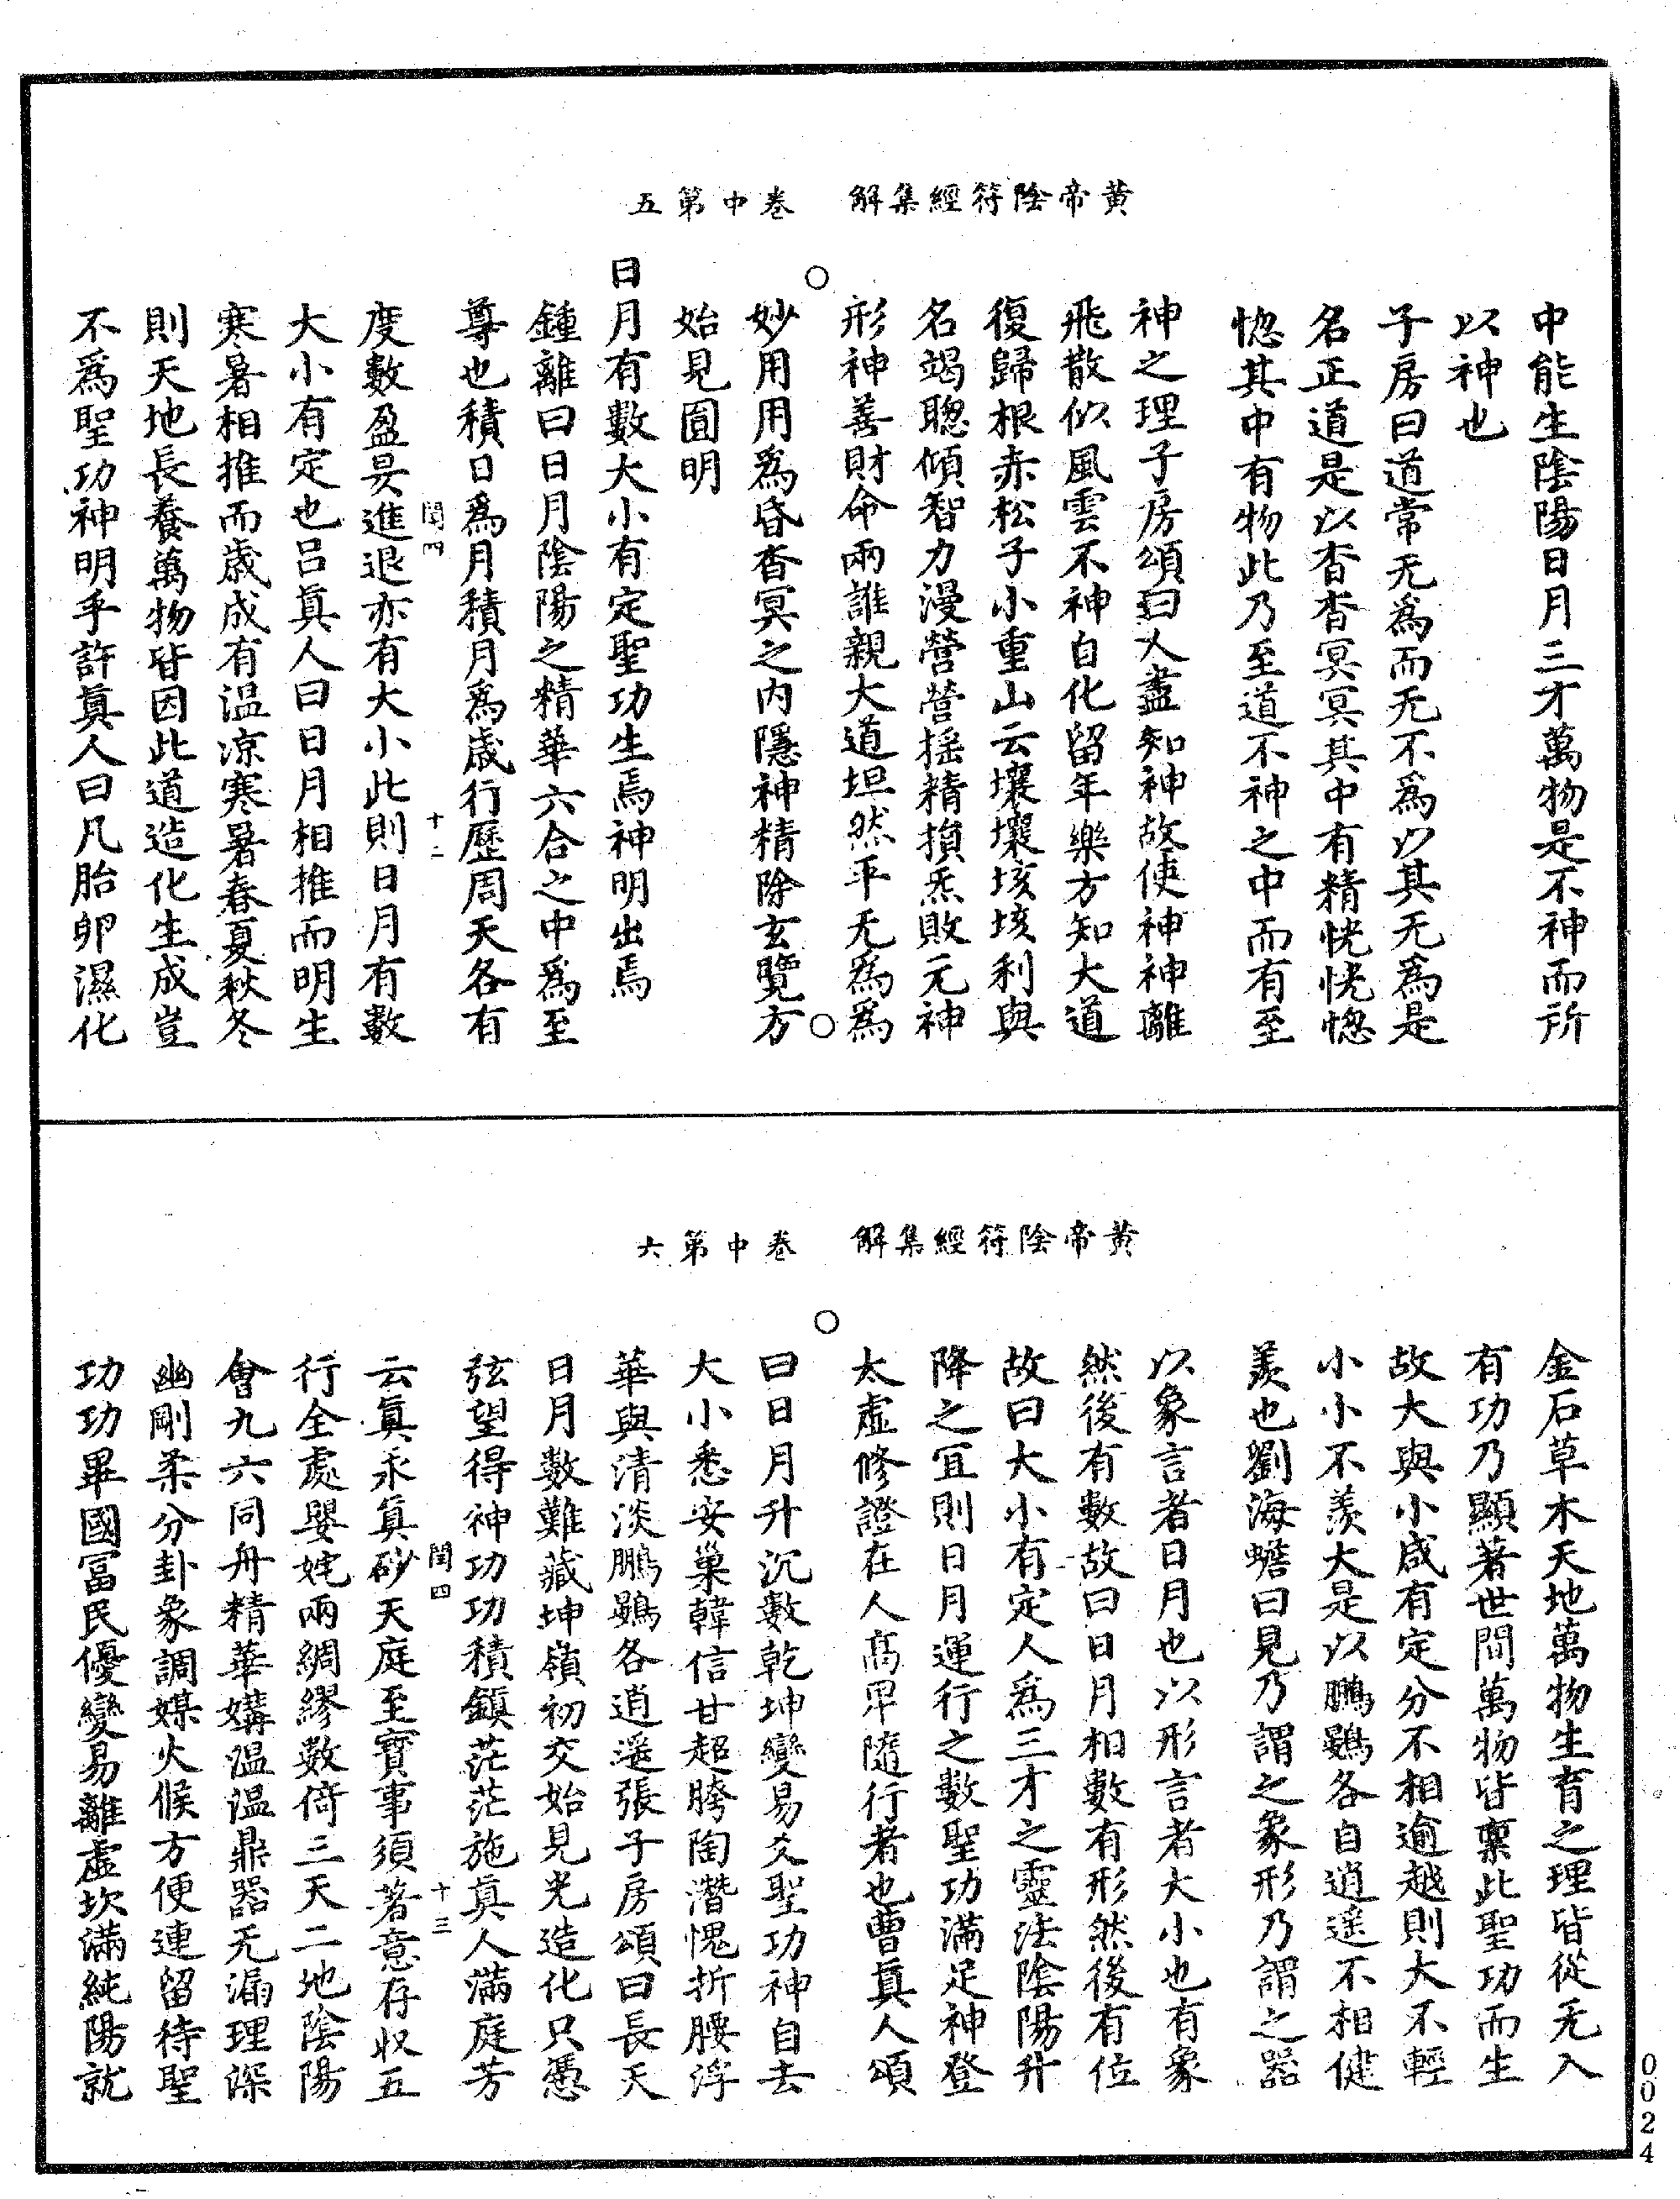 黃帝陰符經集解　卷中第五
中能生陰陽日月三才萬物是不神而所
以神也
子房曰道常无爲而无不爲以其无爲是
名正道是以杳杳冥冥其中有精恍恍惚
惚其中有物此乃至道不神之中而有至
神之理子房頌曰人盡知神故使神神離
飛散似風雲不神自化留年樂方知大道
復歸根赤松子小重山云壤壤垓垓利與
名竭聰傾智力漫營營揺精損炁敗元神
形神善財命兩誰親大道坦然平无爲爲
妙用用爲昏杳冥之内隱神精除玄覽方
始見圓明
日月有數大小有定聖功生焉神明出焉
鍾離曰日月陰陽之精華六合之中爲至
尊也積日爲月積月爲歲行歷周天各有
閏四　十二
度數盈昃進退亦有大小此則日月有數
大小有定也吕眞人曰日月相推而明生
寒暑相推而歲成有温凉寒暑春夏秋冬
則天地長養萬物皆因此道造化生成豈
不爲聖功神明乎許眞人曰凡胎卵濕化
黃帝陰符經集解　卷中第六
金石草木天地萬物生育之理皆從无入
有功乃顯著世間萬物皆稟此聖功而生
故大與小咸有定分不相逾越則大不輕
小小不羨大是以鵬鷃各自逍遥不相健
羨也劉海蟾曰見乃謂之象形乃謂之器
以象言者日月也以形言者大小也有象
然後有數故曰日月相數有形然後有位
故曰大小有定人爲三才之靈法陰陽升
降之冝則日月運行之數聖功滿足神登
太虚修證在人高卑隨行者也曹眞人頌
曰日月升沉數乾坤變易爻聖功神自去
大小悉安巢韓信甘超胯陶潛愧折腰浮
華與清淡鵬鷃各逍遥張子房頌曰長天
日月數難藏坤嶺初交始見光造化只憑
弦望得神功功積鎮茫茫施眞人滿庭芳
閏四　十三
云眞汞眞砂天庭至寶事須著意存収五
行全處嬰姹兩綢繆數倚三天二地陰陽
會九六同舟精華媾温温鼎器无漏理深
幽剛柔分卦象調媒火候方便連留待聖
功功畢國冨民優變易離虚坎滿純陽就
0024